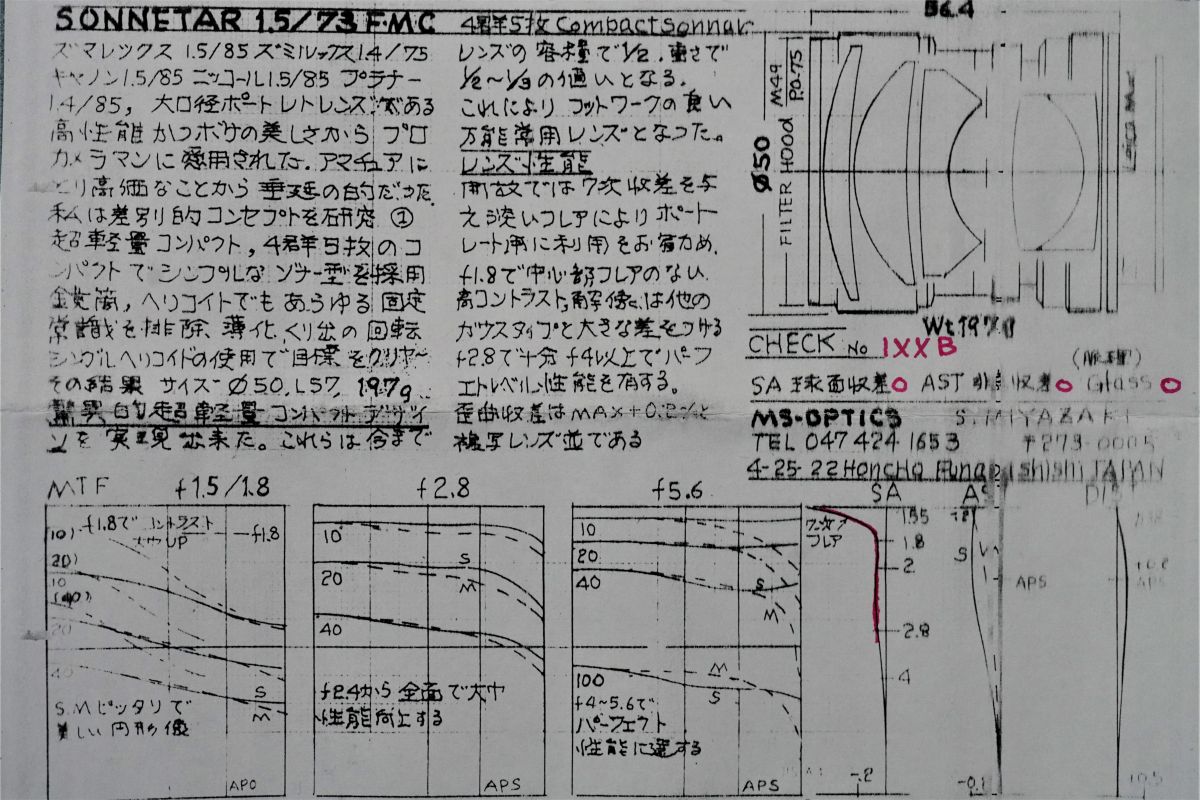 SONNETAR 1.5/73 FMC 4群5枚 Compact Sonnar
ズマレックス 1.5/85 ズミルックス1.4/75
キャノン1.5/85 ニッコール1.5/85 プラナー
1.4/85, 大口径ポートレトレンズである
高性能かつボケの美しさから プロ
カメラマンに愛用された. アマチュアに
とり高価なことから垂涎の的だった
私は差別的コンセプトを研究 ①
超軽量コンパクト, 4群5枚のコ
ンパクトでシンプルなゾナー型を採用
鏡筒, ヘリコイトでもあらゆる固定
常識を排除, 薄化, くり出の回転
シングルヘリコイドの使用で目標をクリヤー
その結果 サイズ Ø50, L57, 197g
驚異的超軽量コンパクトデザイ
ンを実現出来た。これらは今まで
レンズの容量で1/2. 重さで
1/2〜1/3の違いとなる.
これにより フットワークの良い
万能常用レンズとなった。
レンズ性能
開放では7次収差を与
え淡いフレアによりポート
レート用に利用をお奨め.
f1.8で中心部フレアのない
高コントラスト, 解像は他の
ガウスタイプと大きな差をつける
f2.8で十分 f4以上でパーフ
ェクトレベル性能を有する。
歪曲収差はMAX+0.2%と
複写レンズ並である
56.4
Ø50
FILTER M49 P0.75
HOOD
Wt197g
CHECK No 1XXB
SA 球面収差○ AST 非点収差○ Glass○
MS-OPTICS S.MIYAZAKI
TEL 047 424 1653 〒273-0005
4-25-22 Honcho Funabashishi JAPAN
MTF f1.5/1.8 f2.8 f5.6 SA AS DIST
10) f1.8でコントラスト
大巾UP
f1.8
20)
10
(40)
20
40
S
M
S.Mピッタリで
美しい円形像
APO
10
20
40
S
M
f2.4から全面で大巾
性能向上する
APS
10
20
40
S
M
100
M
S
f4~5.6で
パーフェクト
性能に達する
APS
7次
フレア
1.55
1.8
2
2.8
4
-.2
S
M
APS
-0.1
+0.2
APS
+0.5